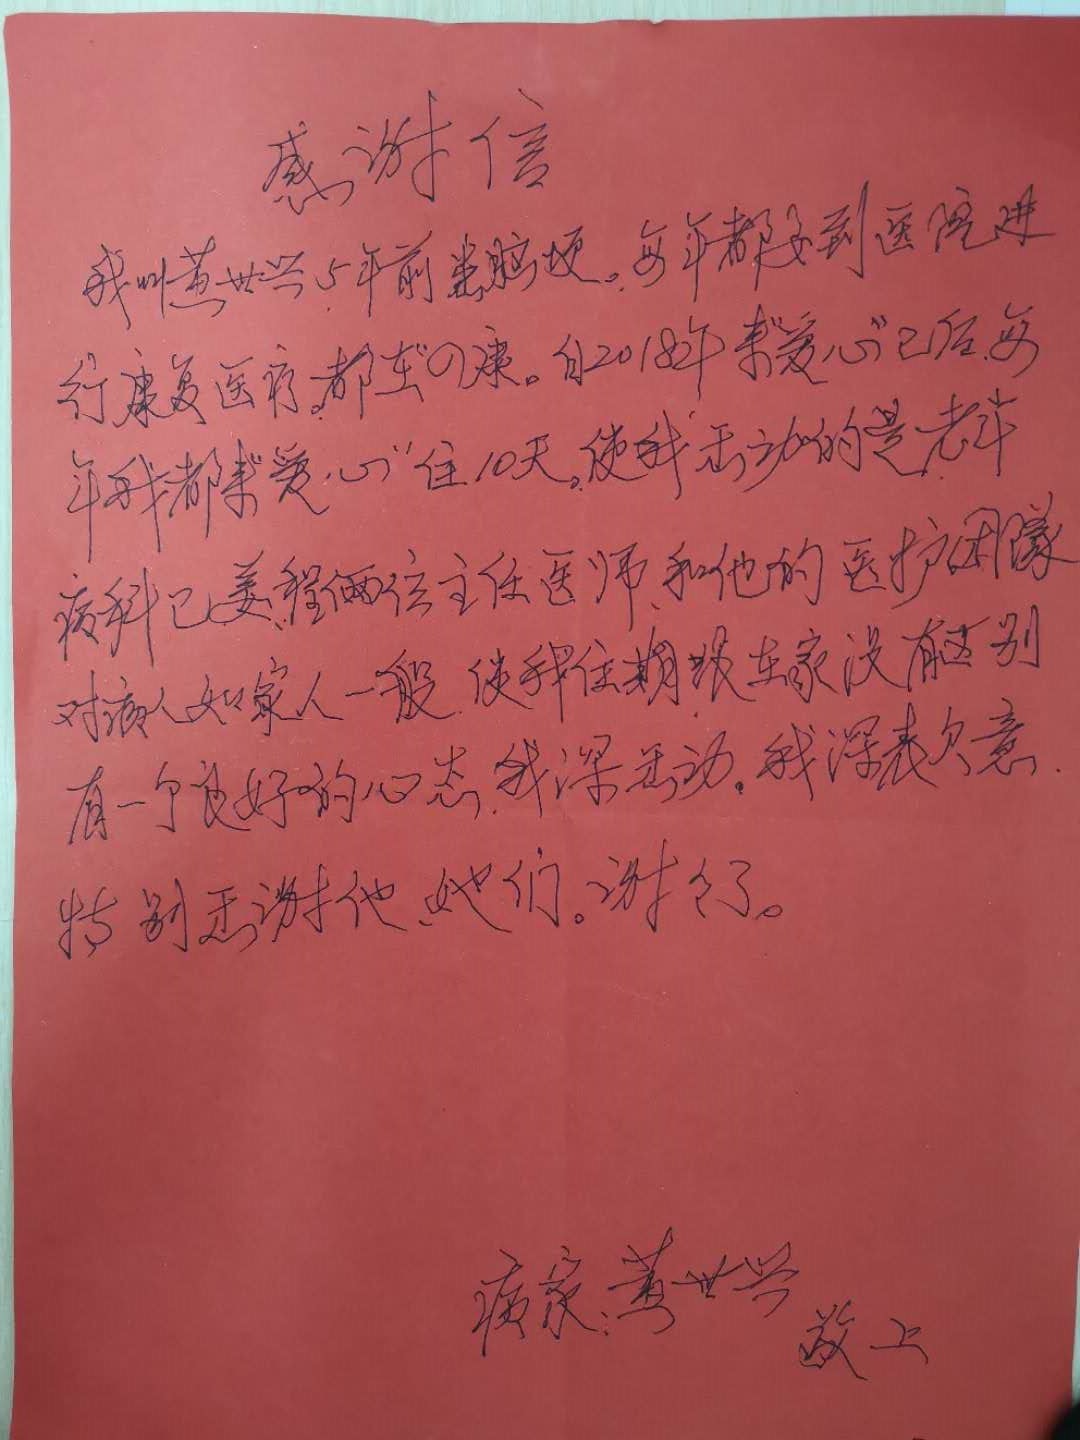 感谢信
我叫黄世兴5年前患脑梗。每年都要到医院进
行康复医疗。都在"康。自2018年来"爱心"已后每
年我都来"爱心"住10天。使我感动的是老年
病科已姜、程俩位主任医师和他的医护团隊
对病人如家人一般,使我住期跟在家没有区别
有一个良好的心态,我深感动。我深表欠意.
特别感谢他、她们。谢了。
病家:黄世兴
敬上